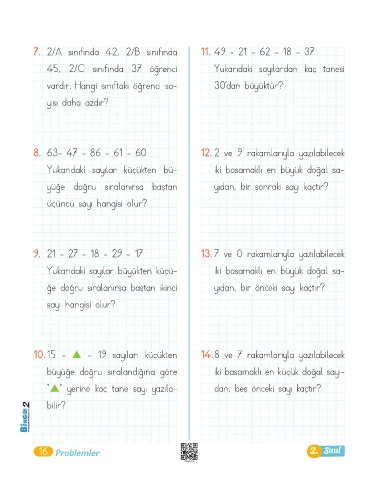 7. 2/A sınıfında 42, 2/B sınıfında
45, 2/C sınıfında 37 öğrenci
vardır. Hangi sınıftaki öğrenci sa-
yısı daha azdır?
8. 63- 47 - 86 - 61 - 60
Yukarıdaki sayılar küçükten bü-
yüğe doğru sıralanırsa baştan
üçüncü sayı hangisi olur?
9. 21 - 27 - 18 - 29 - 17
Yukarıdaki sayılar büyükten küçü-
ğe doğru sıralanırsa baştan ikinci
sayı hangisi olur?
10. 15 - ▲ - 19 sayıları küçükten
büyüğe doğru sıralandığına göre
"▲" yerine kaç tane sayı yazıla-
bilir?
11. 49 - 21 - 62 - 18 - 37
Yukarıdaki sayılardan kaç tanesi
30'dan büyüktür?
12. 2 ve 9 rakamlarıyla yazılabilecek
iki basamaklı en büyük doğal sa-
yıdan, bir sonraki sayı kaçtır?
13. 7 ve 0 rakamlarıyla yazılabilecek
iki basamaklı en büyük doğal sa-
yıdan, bir önceki sayı kaçtır?
14. 8 ve 7 rakamlarıyla yazılabilecek
iki basamaklı en küçük doğal sayı-
dan, beş önceki sayı kaçtır?
BİNGO 2
16 Problemler
2. Sınıf